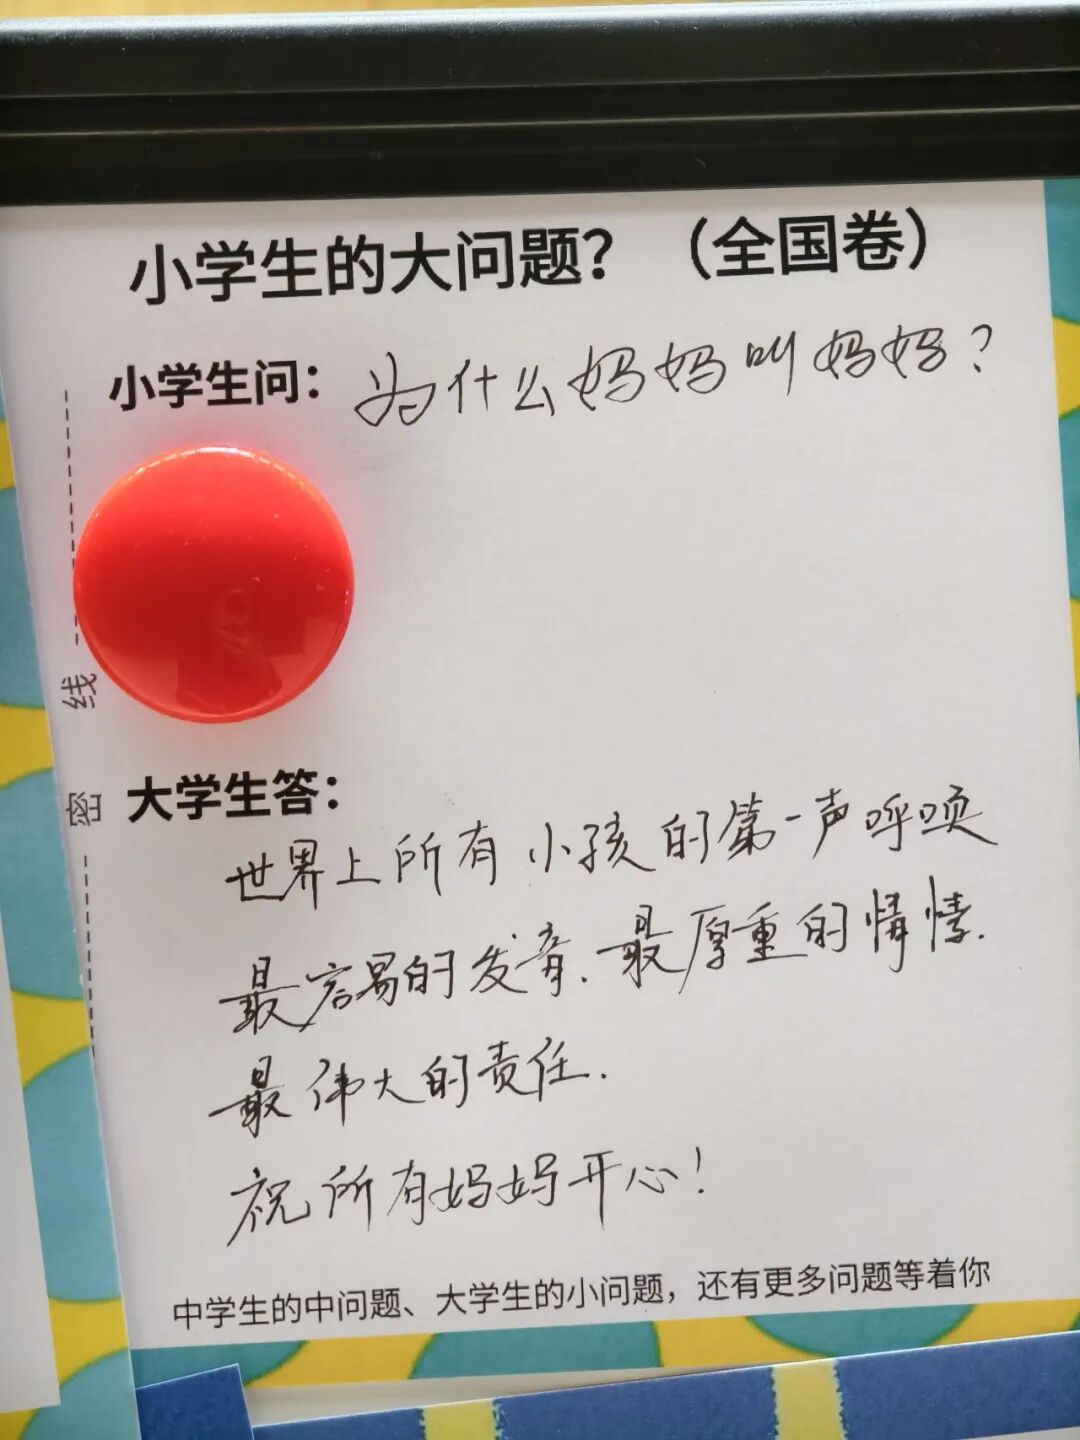 小学生的大问题？（全国卷）
小学生问：为什么妈妈叫妈妈？
线
密
大学生答：
世界上所有小孩的第一声呼唤
最容易的发音.最厚重的情愫.
最伟大的责任.
祝所有妈妈开心！
中学生的中问题、大学生的小问题，还有更多问题等着你